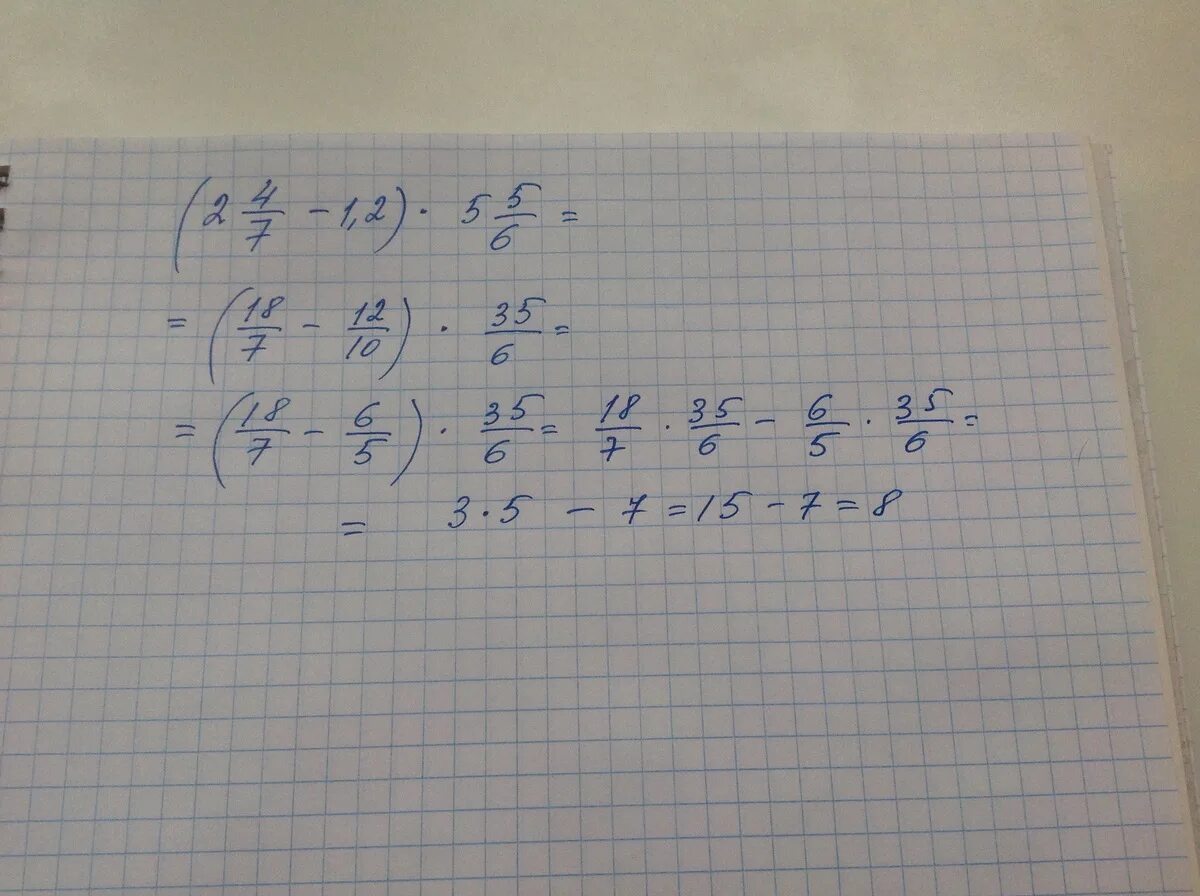 (2 4/7 - 1,2) · 5 5/6 =
= (18/7 - 12/10) · 35/6 =
= (18/7 - 6/5) · 35/6 = 18/7 · 35/6 - 6/5 · 35/6 =
= 3 · 5 - 7 = 15 - 7 = 8